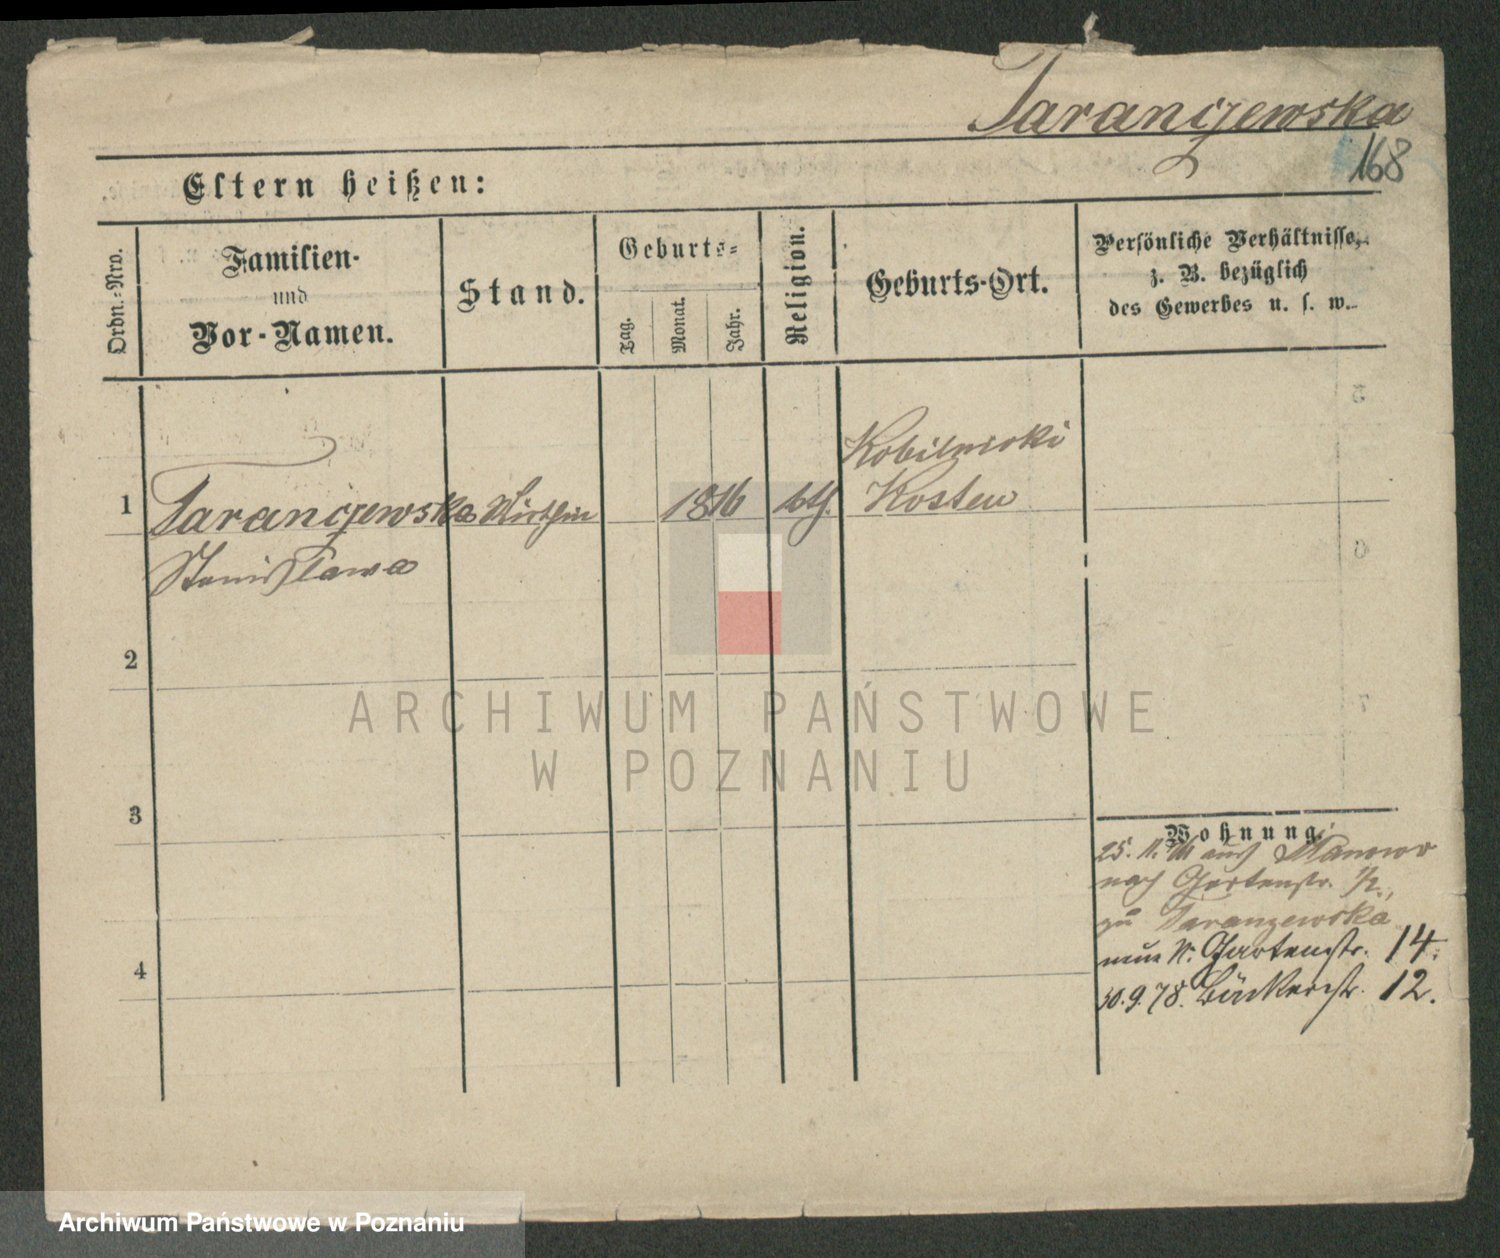 Taranczewska
168
Eltern heißen:
Ordn.-Nro.
Familien-
und
Vor-Namen.
Stand.
Geburts-
Tag.
Monat.
Jahr.
Religion.
Geburts-Ort.
Persönliche Verhältnisse,
z. B. bezüglich
des Gewerbes u. s. w.
Kobilniki
1 Taranczewska Wirthin 1816 kth. Kosten
Stanisława
2
3
4
Wohnung:
25. 11. aus Manowo
nach Gartenstr.
zu Taranzewska
nun N. Gartenstr. 14.
30. 9. 78. Bäckerstr. 12.
ARCHIWUM PAŃSTWOWE
W POZNANIU
Archiwum Państwowe w Poznaniu